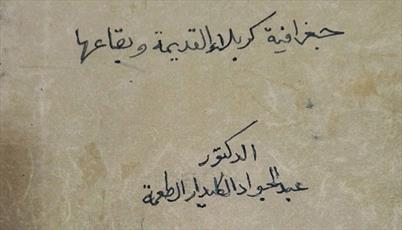 جغرافية كربلاء القديمة وبقاعها
الدكتور
عبد الجواد الكليدار الطعمة